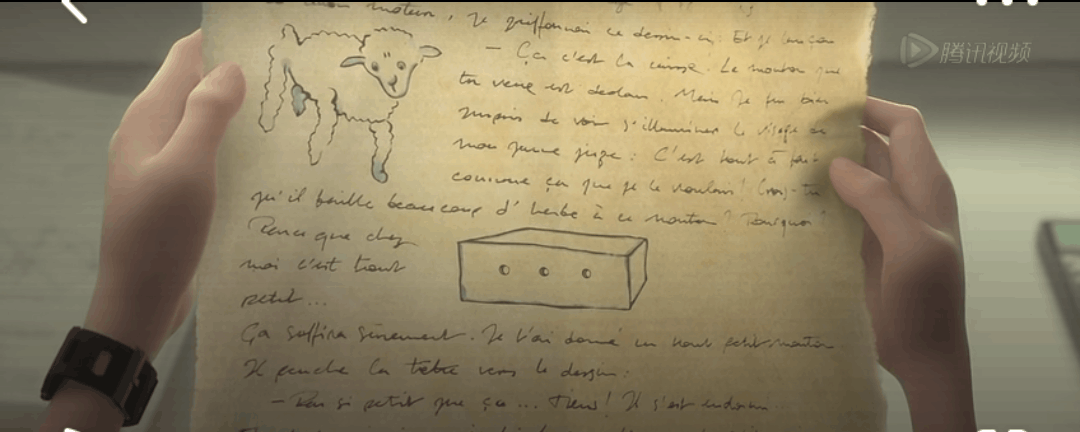 , je griffonnai ce dessin-ci. Et je lançai
— Ça c'est la caisse. Le mouton que
tu veux est dedans. Mais je fus bien
surpris de voir s'illuminer le visage de
mon jeune juge : C'est tout à fait
comme ça que je le voulais ! Crois-tu
qu'il faille beaucoup d'herbe à ce mouton ? Pourquoi ?
Parce que chez
moi c'est tout
petit...
Ça suffira sûrement. Je t'ai donné un tout petit mouton
Il pencha la tête vers le dessin :
— Pas si petit que ça... Tiens ! Il s'est endormi...
腾讯视频